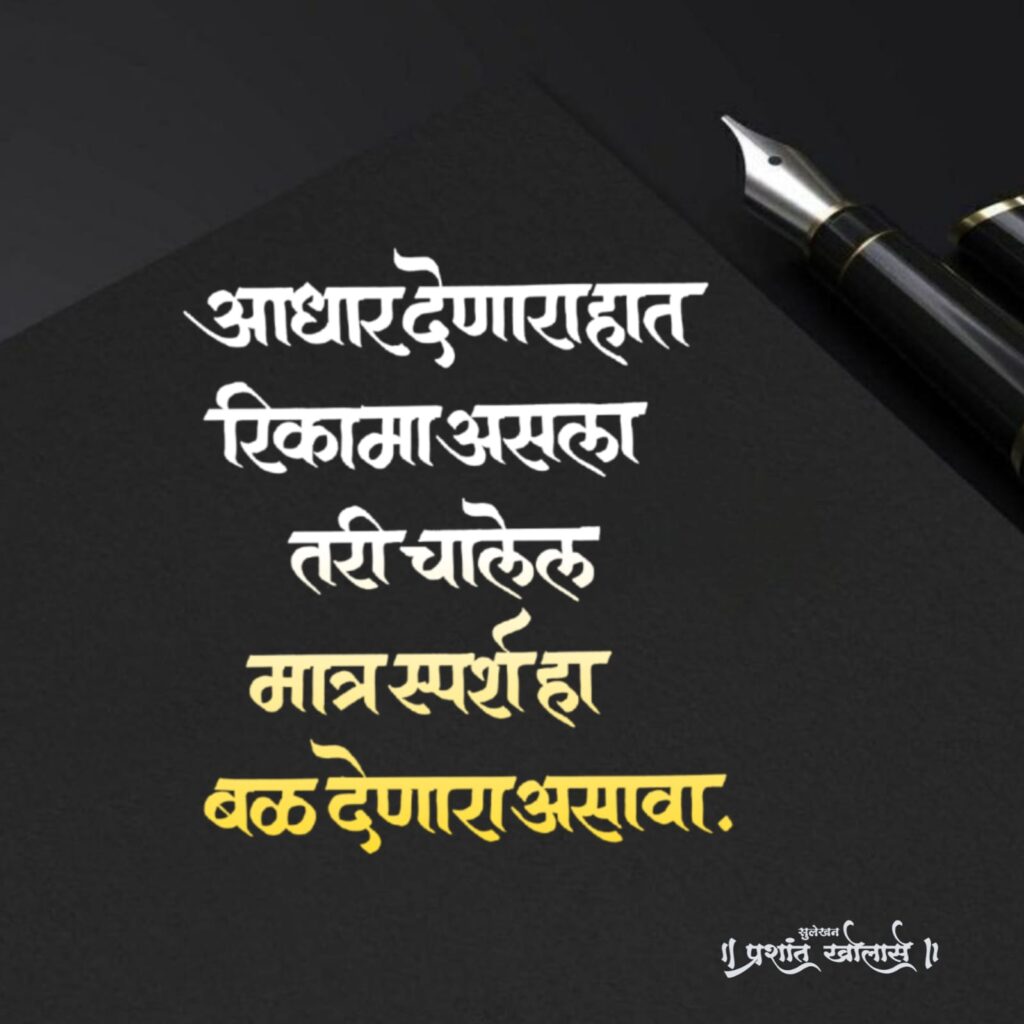 आधार देणारा हात
रिकामा असला
तरी चालेल
मात्र स्पर्श हा
बळ देणारा असावा.
सुलेखन
॥ प्रशांत खोलासे ॥